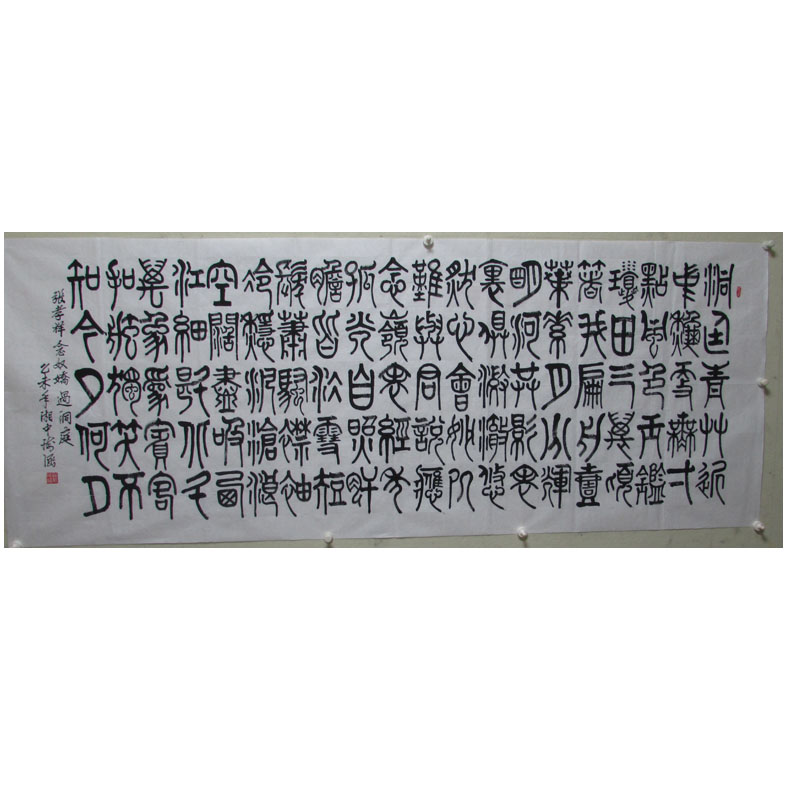 洞庭青艸近
中穐更無弌
點風色玉鑑
瓊田三萬頃
箸我扁舟壹
葉素月分輝
明河共影表
裏俱澂澈悠
然心會妙処
難與君說應
念嶺表經年
孤光自照肝
膽皆冰雪短
髮蕭騷襟袖
冷穩泛滄浪
空闊盡吸西
江細斟北斗
萬象為賓客
扣舷獨笑不
知今夕何夕
張孝祥念奴嬌過洞庭
乙未年湘中